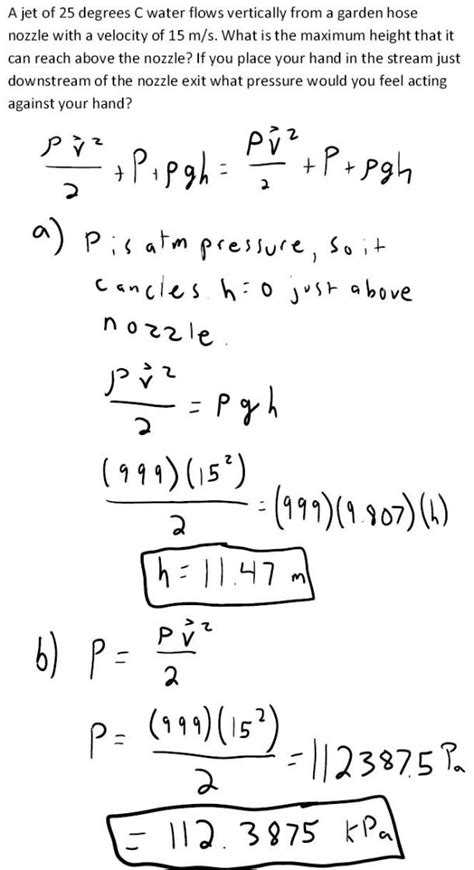 A jet of 25 degrees C water flows vertically from a garden hose
nozzle with a velocity of 15 m/s. What is the maximum height that it
can reach above the nozzle? If you place your hand in the stream just
downstream of the nozzle exit what pressure would you feel acting
against your hand?
ρv⃗²/2 + P + ρgh = ρv⃗²/2 + P + ρgh
a) P is atm pressure, so it
cancles. h=0 just above
nozzle.
ρv⃗²/2 = ρgh
(999)(15²)/2 = (999)(9.807)(h)
h = 11.47 m
b) P = ρv⃗²/2
P = (999)(15²)/2 = 112387.5 Pa
= 112.3875 kPa